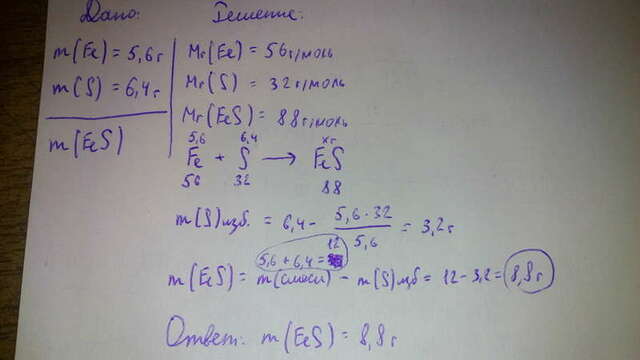 Дано:
m(Fe) = 5,6г
m(S) = 6,4г
m(FeS)
Решение:
Mr(Fe) = 56г/моль
Mr(S) = 32г/моль
Mr(FeS) = 88г/моль
5,6 6,4 xг
Fe + S → FeS
56 32 88
m(S)изб. = 6,4 - 5,6·32/5,6 = 3,2г
5,6 + 6,4 = 12
m(FeS) = m(смеси) - m(S)изб = 12 - 3,2 = 8,8г
Ответ: m(FeS) = 8,8г